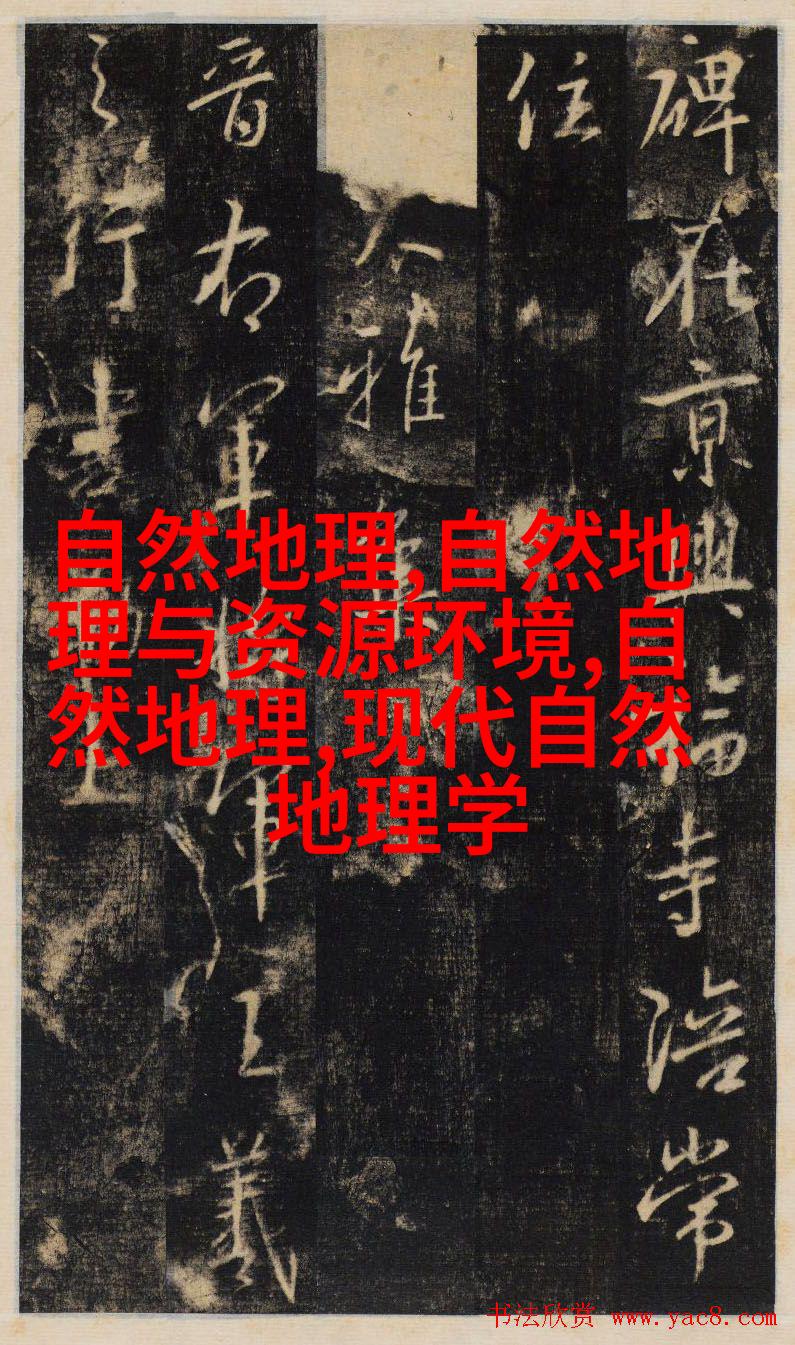 碑在京興福寺陪常
住
大雅集
晋右軍將軍王羲
之行書勒上
自然地理,自然地
理与资源环境,自
然地理,现代自然
地理学
书法欣赏 www.yac8.com